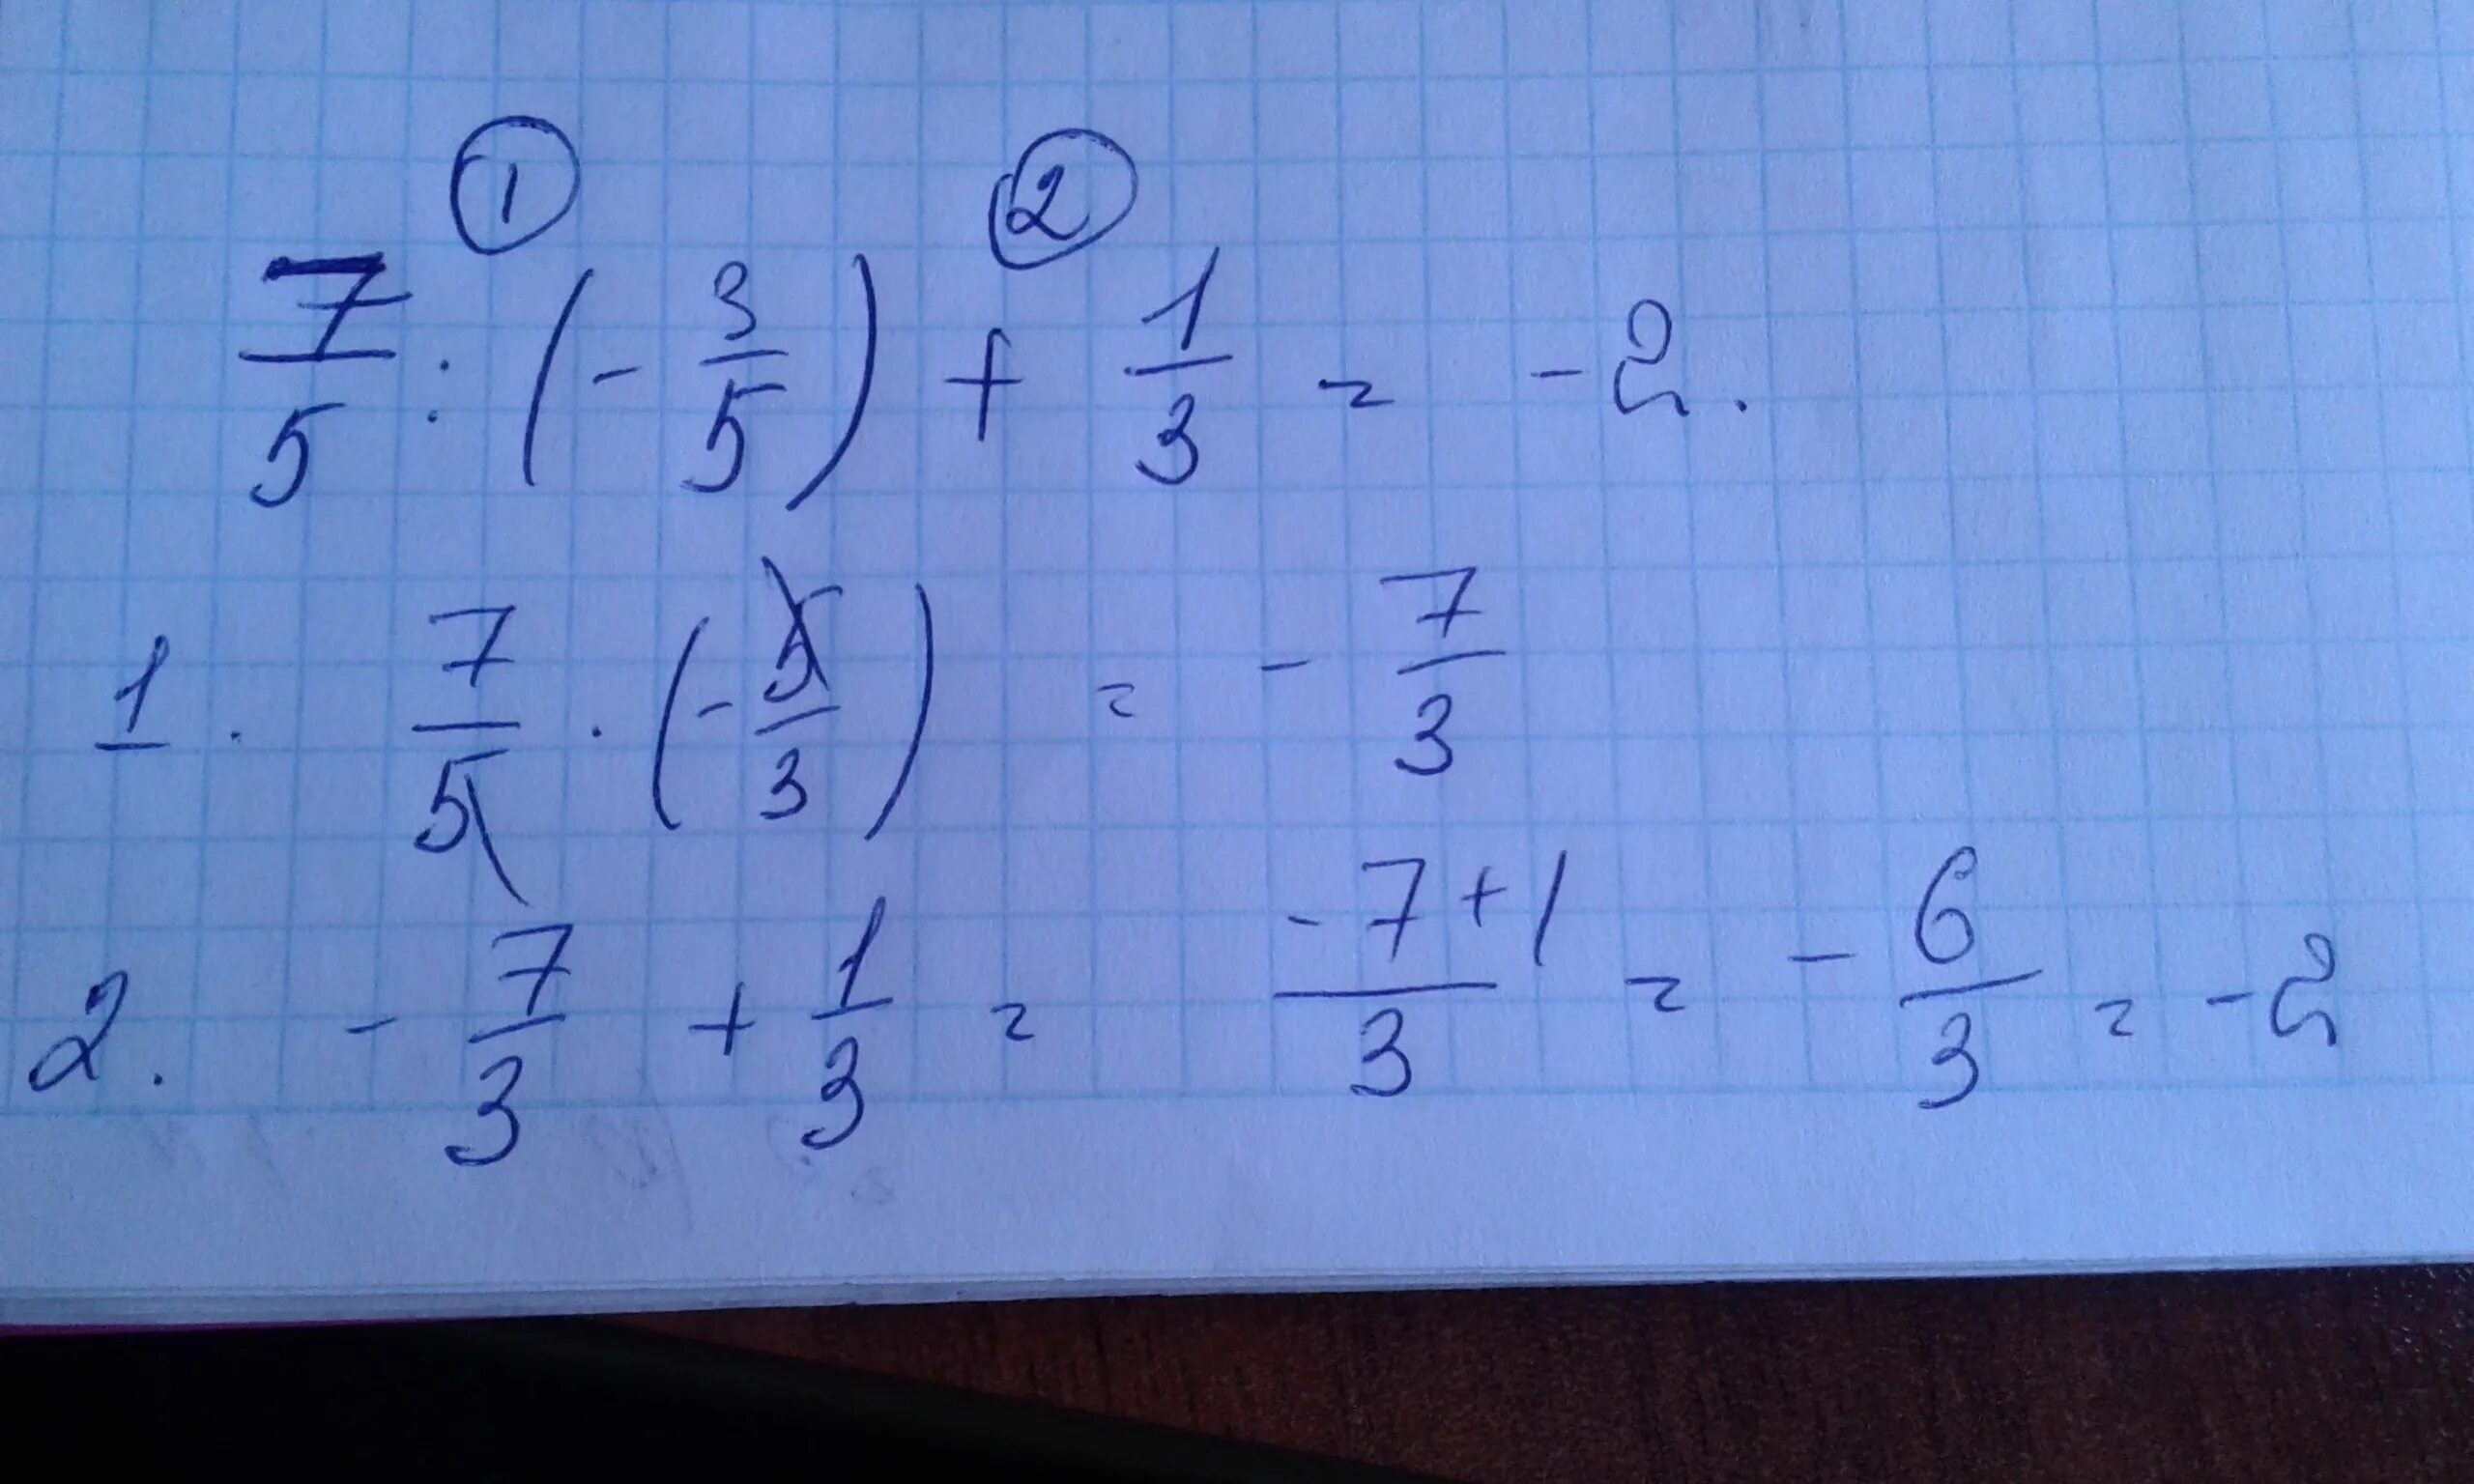 ① ②
7/5 : (- 3/5) + 1/3 = -2.
1. 7/5 · (- 5/3) = - 7/3
2. - 7/3 + 1/3 = -7+1/3 = - 6/3 = -2